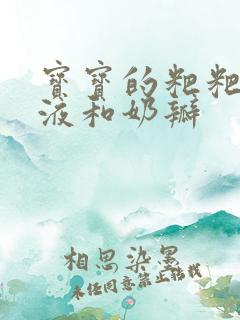 宝宝的粑粑
液和奶瓣
相思染墨
未经同意禁止转载